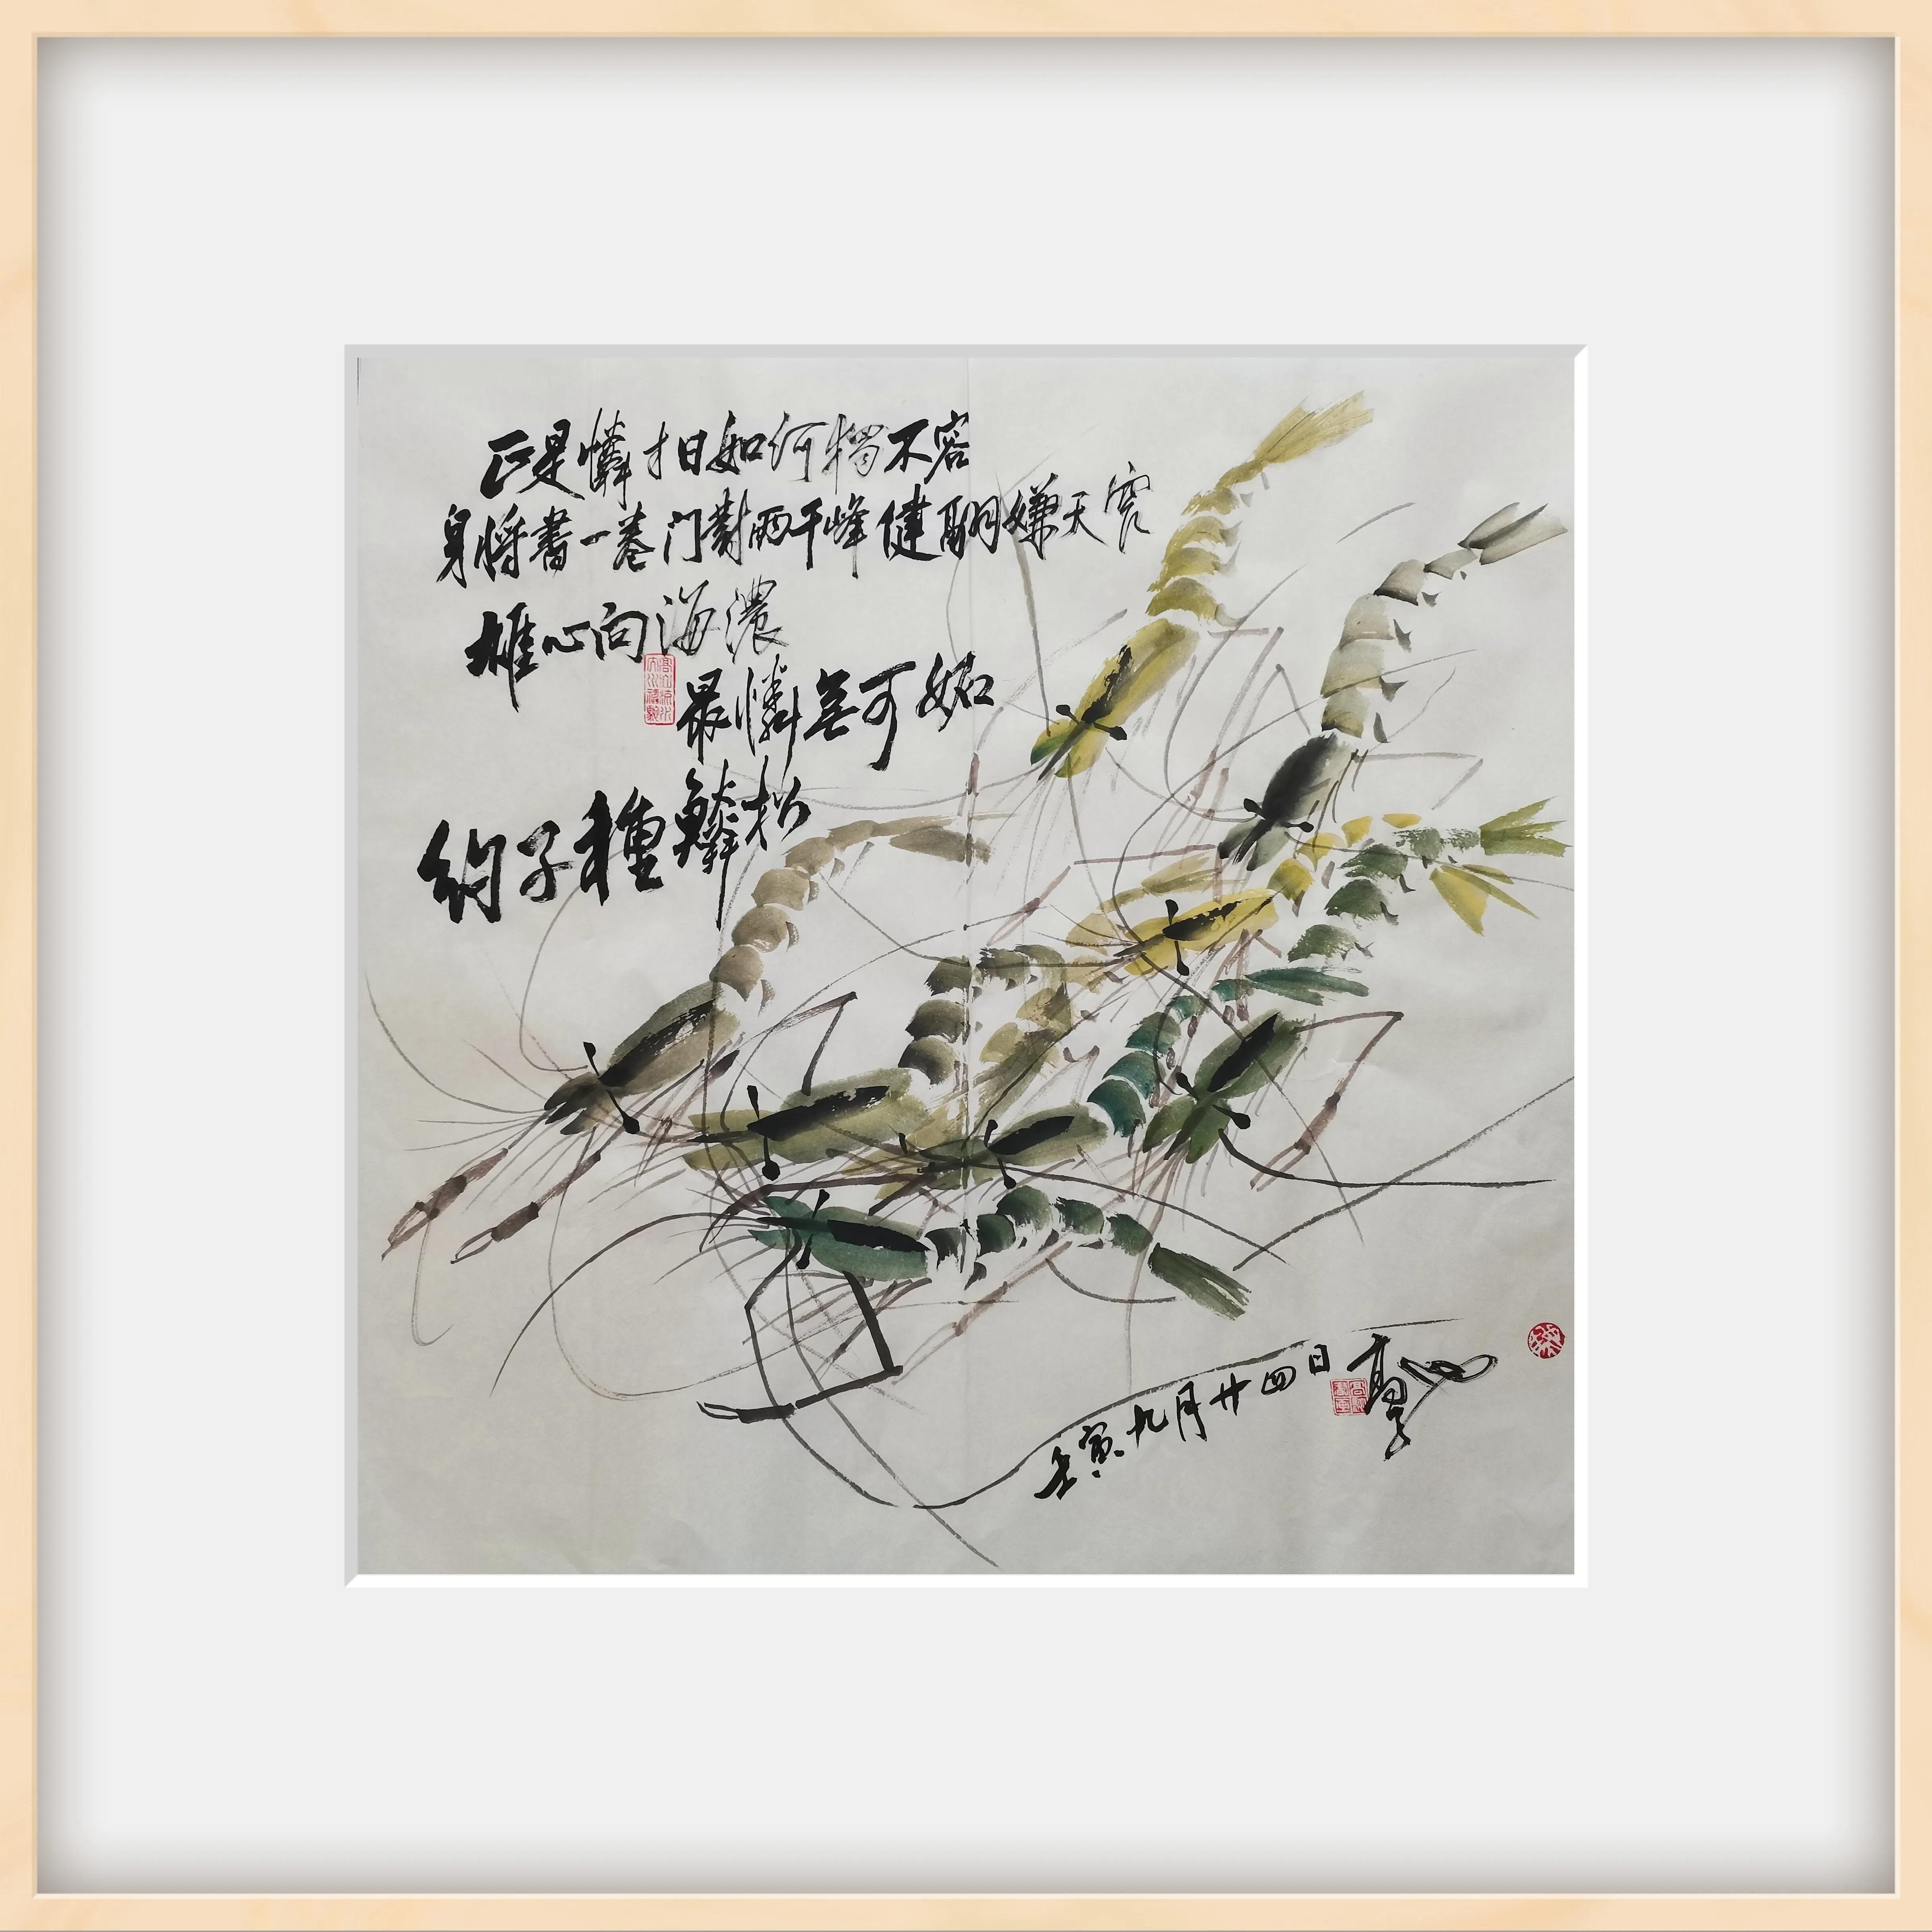 正是憐才日如何獨不容
身將書一卷门對兩千峰健翮嫌天窄
雄心向海濃
最憐無可如
約子種松
壬寅九月廿四日